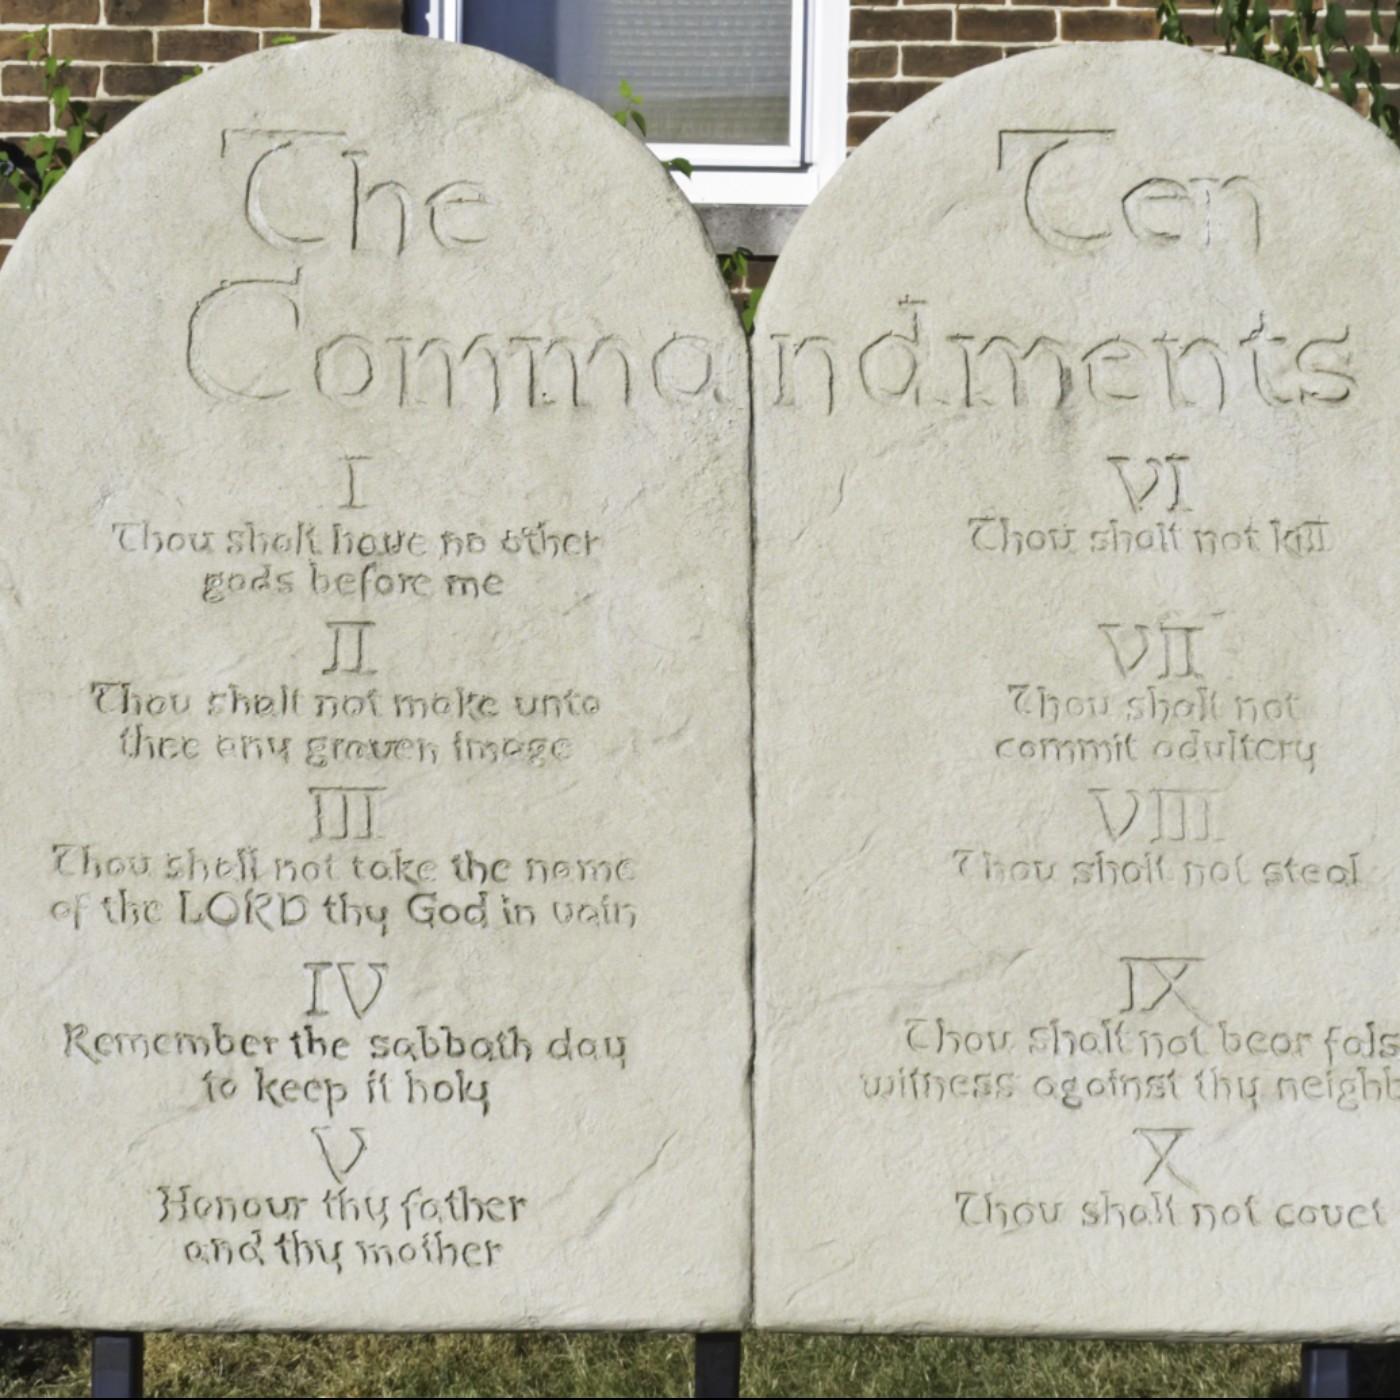 The Ten
Commandments
I
Thou shalt have no other
gods before me
II
Thou shalt not make unto
thee any graven image
III
Thou shalt not take the name
of the LORD thy God in vain
IV
Remember the sabbath day
to keep it holy
V
Honour thy father
and thy mother
VI
Thou shalt not kill
VII
Thou shalt not
commit adultery
VIII
Thou shalt not steal
IX
Thou shalt not bear fals
witness against thy neighb
X
Thou shalt not covet